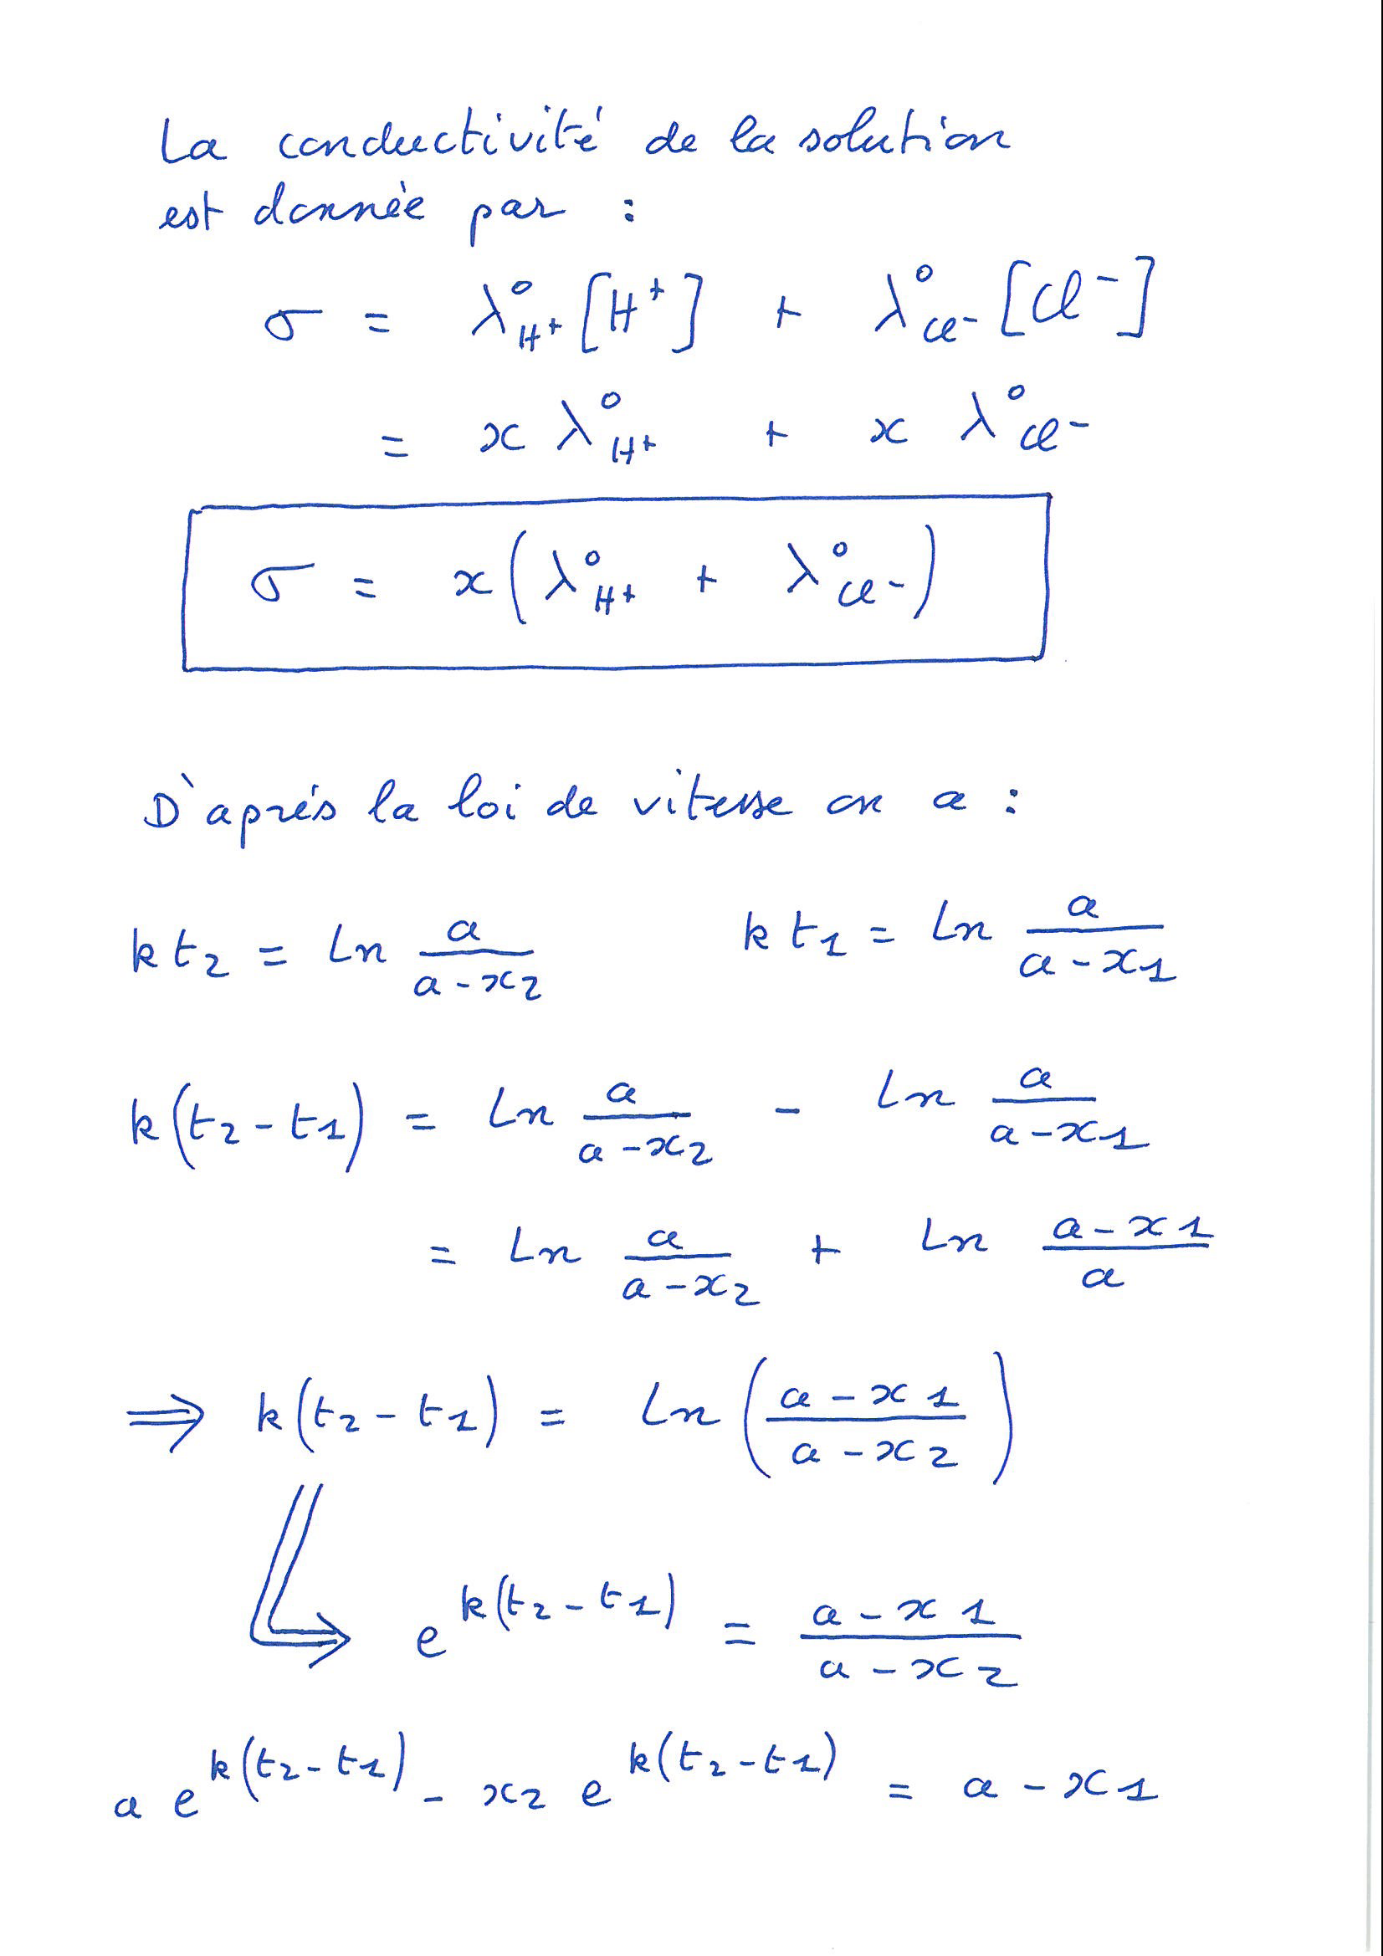 La conductivité de la solution
est donnée par :
σ = λ°H+ [H+] + λ°Cl- [Cl-]
= x λ°H+ + x λ°Cl-
σ = x(λ°H+ + λ°Cl-)
D'après la loi de vitesse on a :
kt2 = Ln a/(a-x2)    kt1 = Ln a/(a-x1)
k(t2-t1) = Ln a/(a-x2) - Ln a/(a-x1)
= Ln a/(a-x2) + Ln (a-x1)/a
⇒ k(t2-t1) = Ln((a-x1)/(a-x2))
e^k(t2-t1) = (a-x1)/(a-x2)
a e^k(t2-t1) - x2 e^k(t2-t1) = a - x1